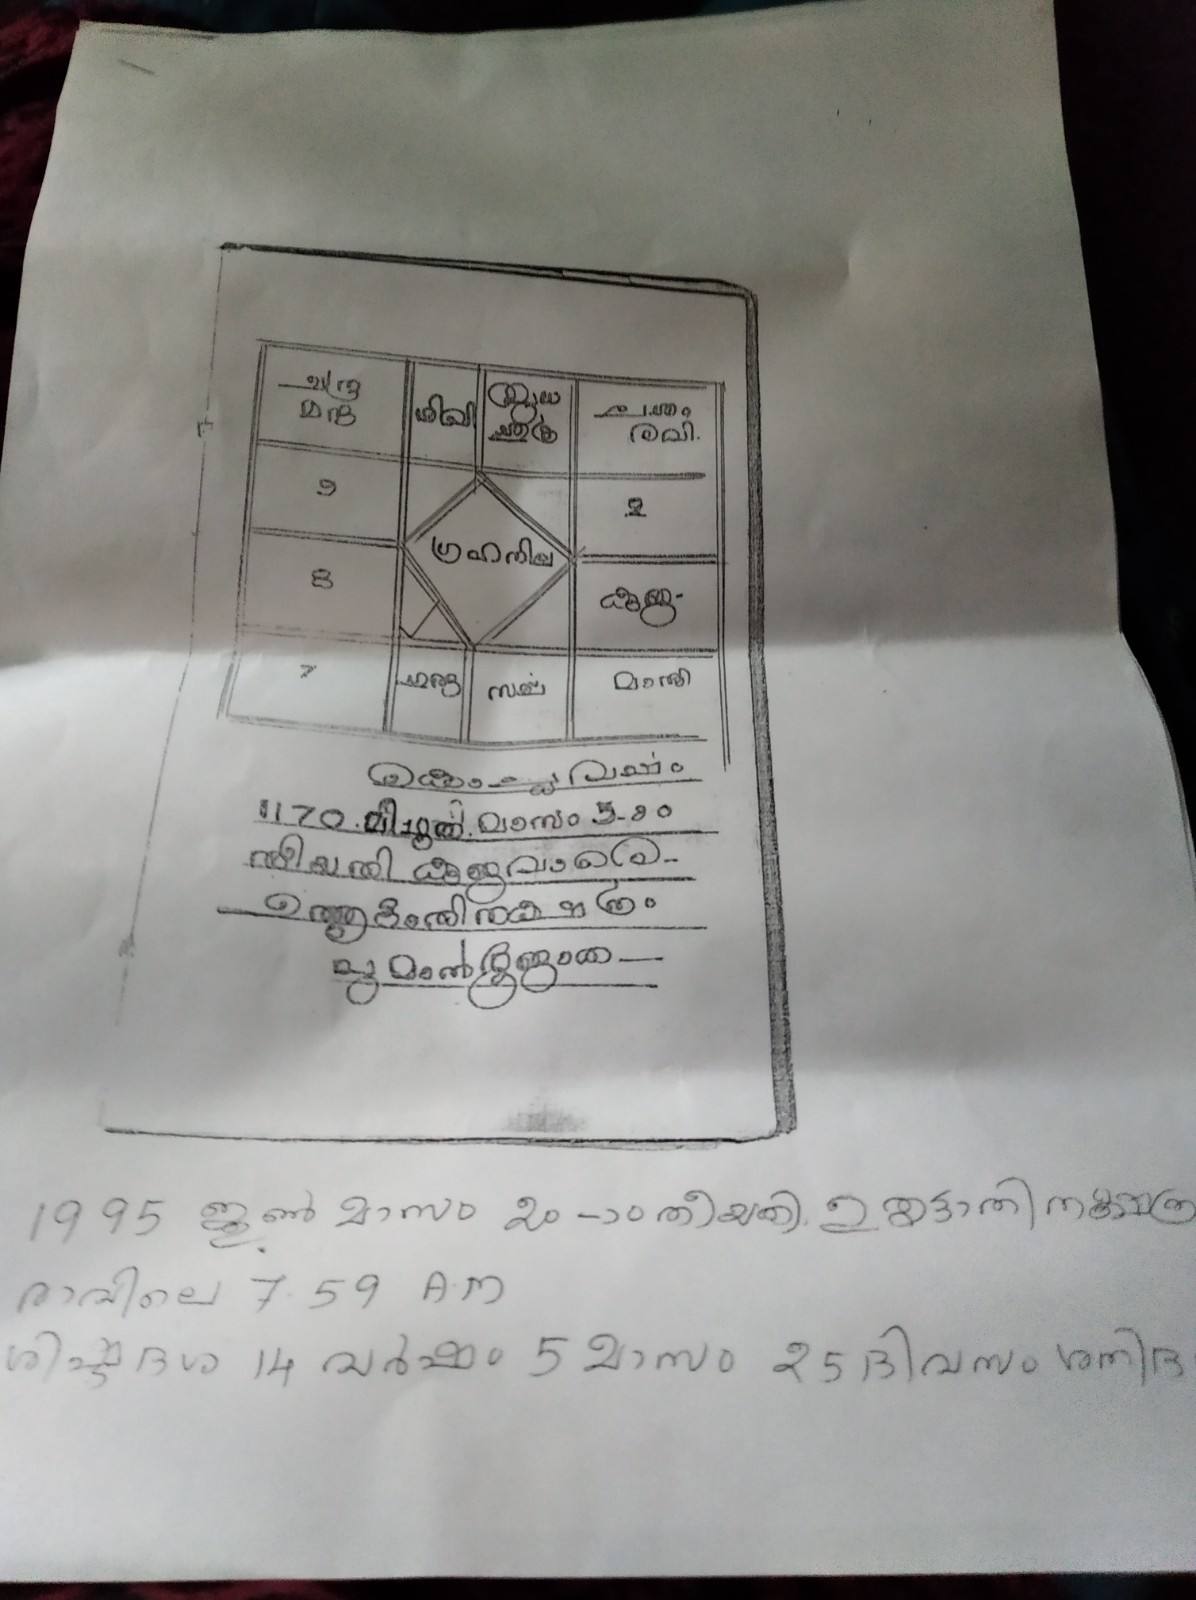 ചന്ദ്ര
മന്ദ
ശിഖി
ബുധ
ശുക്ര
രവി.
൭
൨
ഗ്രഹനില
൮
കുജ
7
ഗുരു
സർപ്പ
മാന്ദി
കൊല്ല വർഷം
1170. മിഥുന. മാസം 5-ാം
തീയതി കുജവാരെ
ഉത്തൃട്ടാതി നക്ഷത്രം
1995 ജൂൺ മാസം 20-ാം തീയതി. ഉത്രട്ടാതി നക്ഷത്ര
രാവിലെ 7.59 A.M
ശിഷ്ടദശ 14 വർഷം 5 മാസം 25 ദിവസം ശനിദ